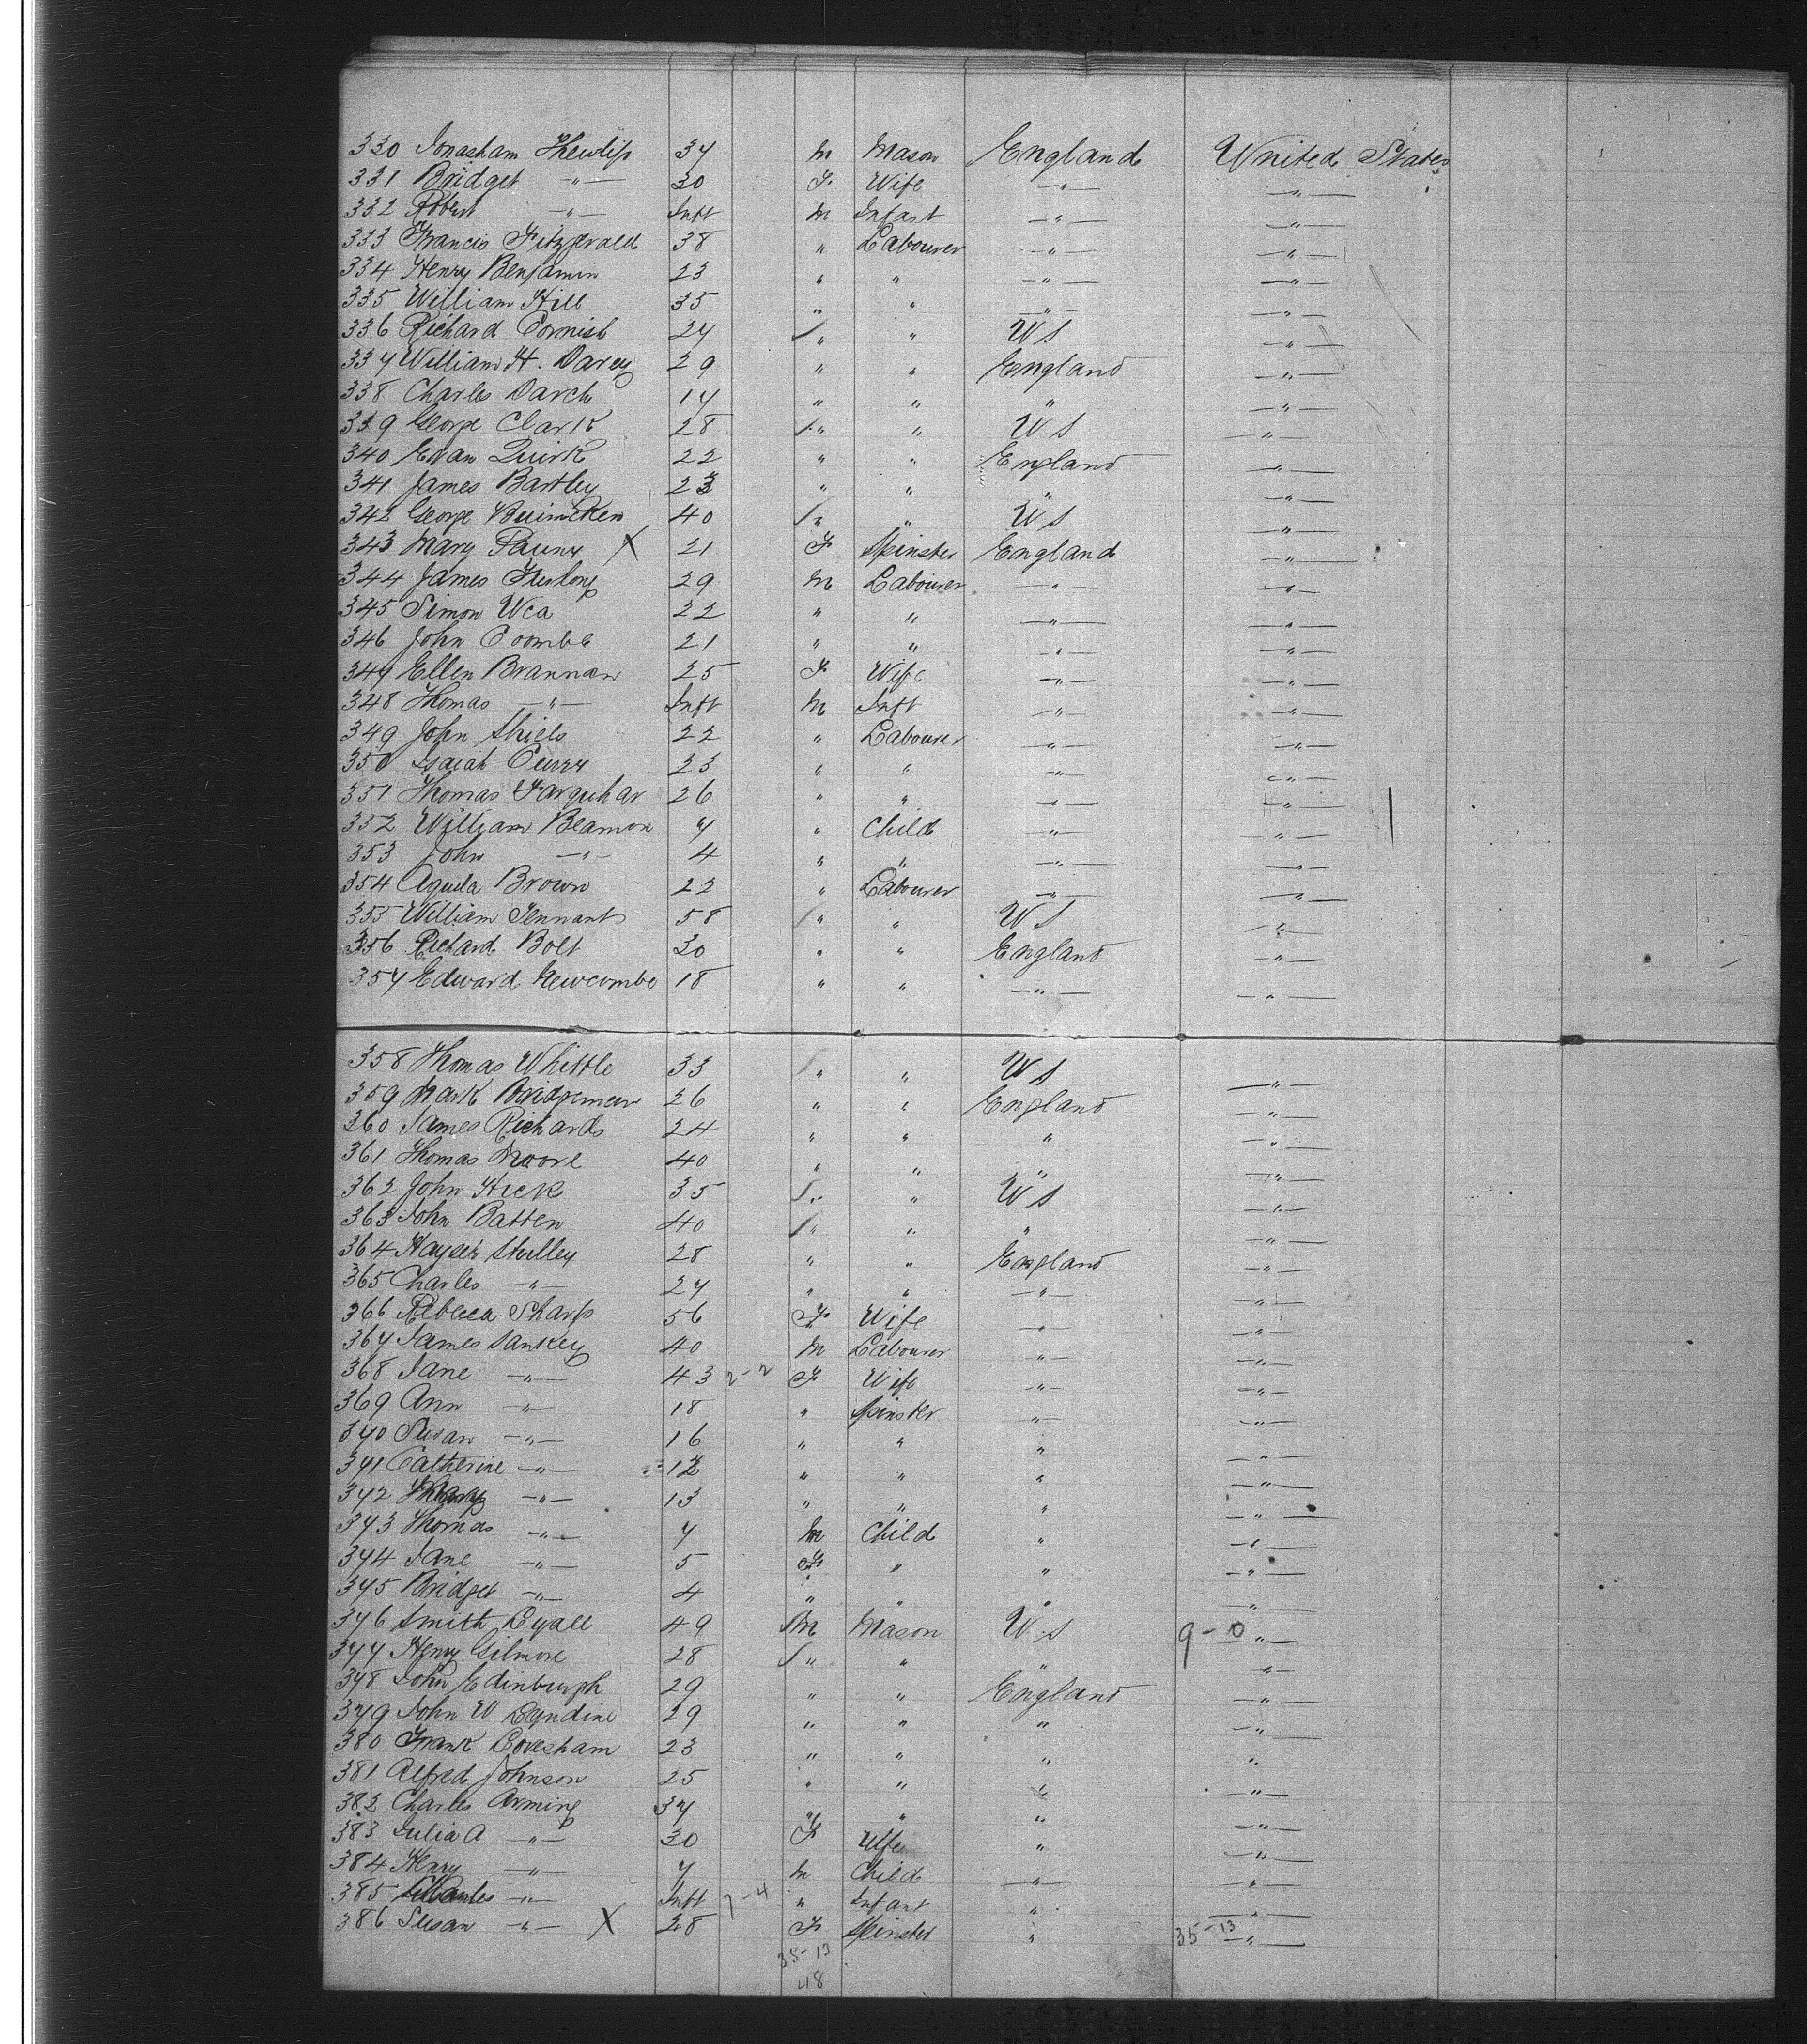 330 Jonasham Thewlip 34 M Mason England United States
331 Bridget —"— 30 F. Wife —"— —"—
332 Robert —"— Inft M Infant —"— —"—
333 Francis Fitzgerald 38 " Labourer —"— —"—
334 Henry Benjamin 23 " " —"— —"—
335 William Hill 35 " " —"— —"—
336 Richard Cornish 24 " " US —"—
337 William H. Darcy 29 " " England —"—
338 Charles Darch 17 " " " —"—
339 George Clark 28 " " US —"—
340 Evan Quirk 22 " " England —"—
341 James Bartley 23 " " " —"—
342 George 40 " " US —"—
343 Mary X 21 F. Spinster England —"—
344 James Furlong 29 M Labourer —"— —"—
345 Simon Wea 22 " " —"— —"—
346 John Coombe 21 " " —"— —"—
347 Ellen Brannan 25 F. Wife —"— —"—
348 Thomas —"— Inft M Inft —"— —"—
349 John Shiels 22 " Labourer —"— —"—
350 Isaiah Curry 23 " " —"— —"—
351 Thomas Farquhar 26 " " —"— —"—
352 William Beamon 7 " Child —"— —"—
353 John —"— 4 " " —"— —"—
354 Aquila Brown 22 " Labourer —"— —"—
355 William Tennant 58 " " US —"—
356 Richard Bolt 30 " " England —"—
357 Edward Newcombe 18 " " —"— —"—
358 Thomas Whittle 33 " " US —"—
359 Mark Bridgeman 26 " " England —"—
360 James Richards 24 " " " —"—
361 Thomas Moore 40 " " " —"—
362 John Hick 35 " " US —"—
363 John Batten 40 " " " —"—
364 Stulley 28 " " England —"—
365 Charles —"— 27 " " —"— —"—
366 Rebecca Sharp 56 F. Wife —"— —"—
367 James Sankey 40 M Labourer —"— —"—
368 Jane —"— 43 2-2 F Wife —"— —"—
369 Ann —"— 18 " Spinster —"— —"—
370 Susan —"— 16 " " " —"—
371 Catherine —"— 12 " " " —"—
372 Mary —"— 13 " " " —"—
373 Thomas —"— 7 M Child " —"—
374 Jane —"— 5 F " " —"—
375 Bridget —"— 4 " " " —"—
376 Smith Lyall 49 M Mason US 9-0 "—
377 Henry Gilmore 28 " " " "—
378 John Edinburgh 29 " " England —"—
379 John W Lyndine 29 " " " —"—
380 Frank Evesham 23 " " " "
381 Alfred Johnson 25 " " " "
382 Charles Arming 37 " " " —"—
383 Julia A —"— 30 F Wife " —"—
384 Henry —"— 7 M Child —"— —"—
385 Charles —"— Inft 7-4 " Infant " —"—
386 Susan —"— X 28 F Spinster " 35-13 —"—
35-13
48